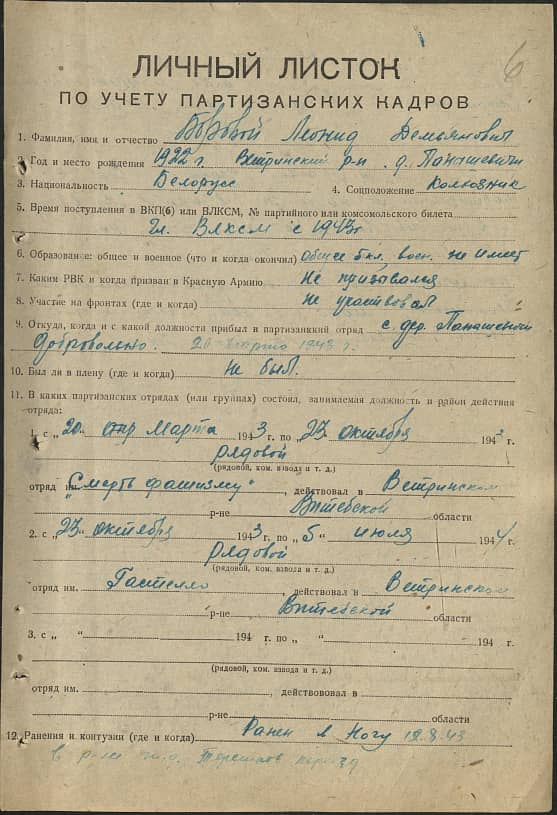 6
ЛИЧНЫЙ ЛИСТОК
ПО УЧЕТУ ПАРТИЗАНСКИХ КАДРОВ
1. Фамилия, имя и отчество Бозовой Леонид Демьянович
2. Год и место рождения 1922 г Ветринский р-н д. Панашевичи
3. Национальность Белорусс 4. Соцположение Колхозник
5. Время поступления в ВКП(б) или ВЛКСМ, № партийного или комсомольского билета
Чл. ВЛКСМ с 1943г
6. Образование: общее и военное (что и когда окончил) Общее 5 кл. воен. не имеет
7. Каким РВК и когда призван в Красную Армию Не призывался
8. Участие на фронтах (где и когда) Не участвовал
9. Откуда, когда и с какой должности прибыл в партизанкий отряд с дер. Панашевичи
Добровольно. 20 марта 1943 г.
10. Был ли в плену (где и когда) Не был.
11. В каких партизанских отрядах (или группах) состоял, занимаемая должность и район действия
отряда:
1. с „20" Марта 1943 г. по „23 октября 1943 г.
рядовой
(рядовой, ком. взвода и т. д.)
отряд им. "Смерть фашизму", действовал в Ветринском
р-не Витебской области
2. с „23" октября 1943 г. по „5" июля 1944 г.
рядовой
(рядовой, ком. взвода и т. д.)
отряд им. Гастелло, действовал в Ветринском
р-не Витебской области
3. с „ " 194 г. по „ " 194 г.
(рядовой, ком. взвода и т. д.)
отряд им. , действововал в
р-не области
12. Ранения и контузии (где и когда) Ранен в Ногу 12.8.43
в р-не ж.д.